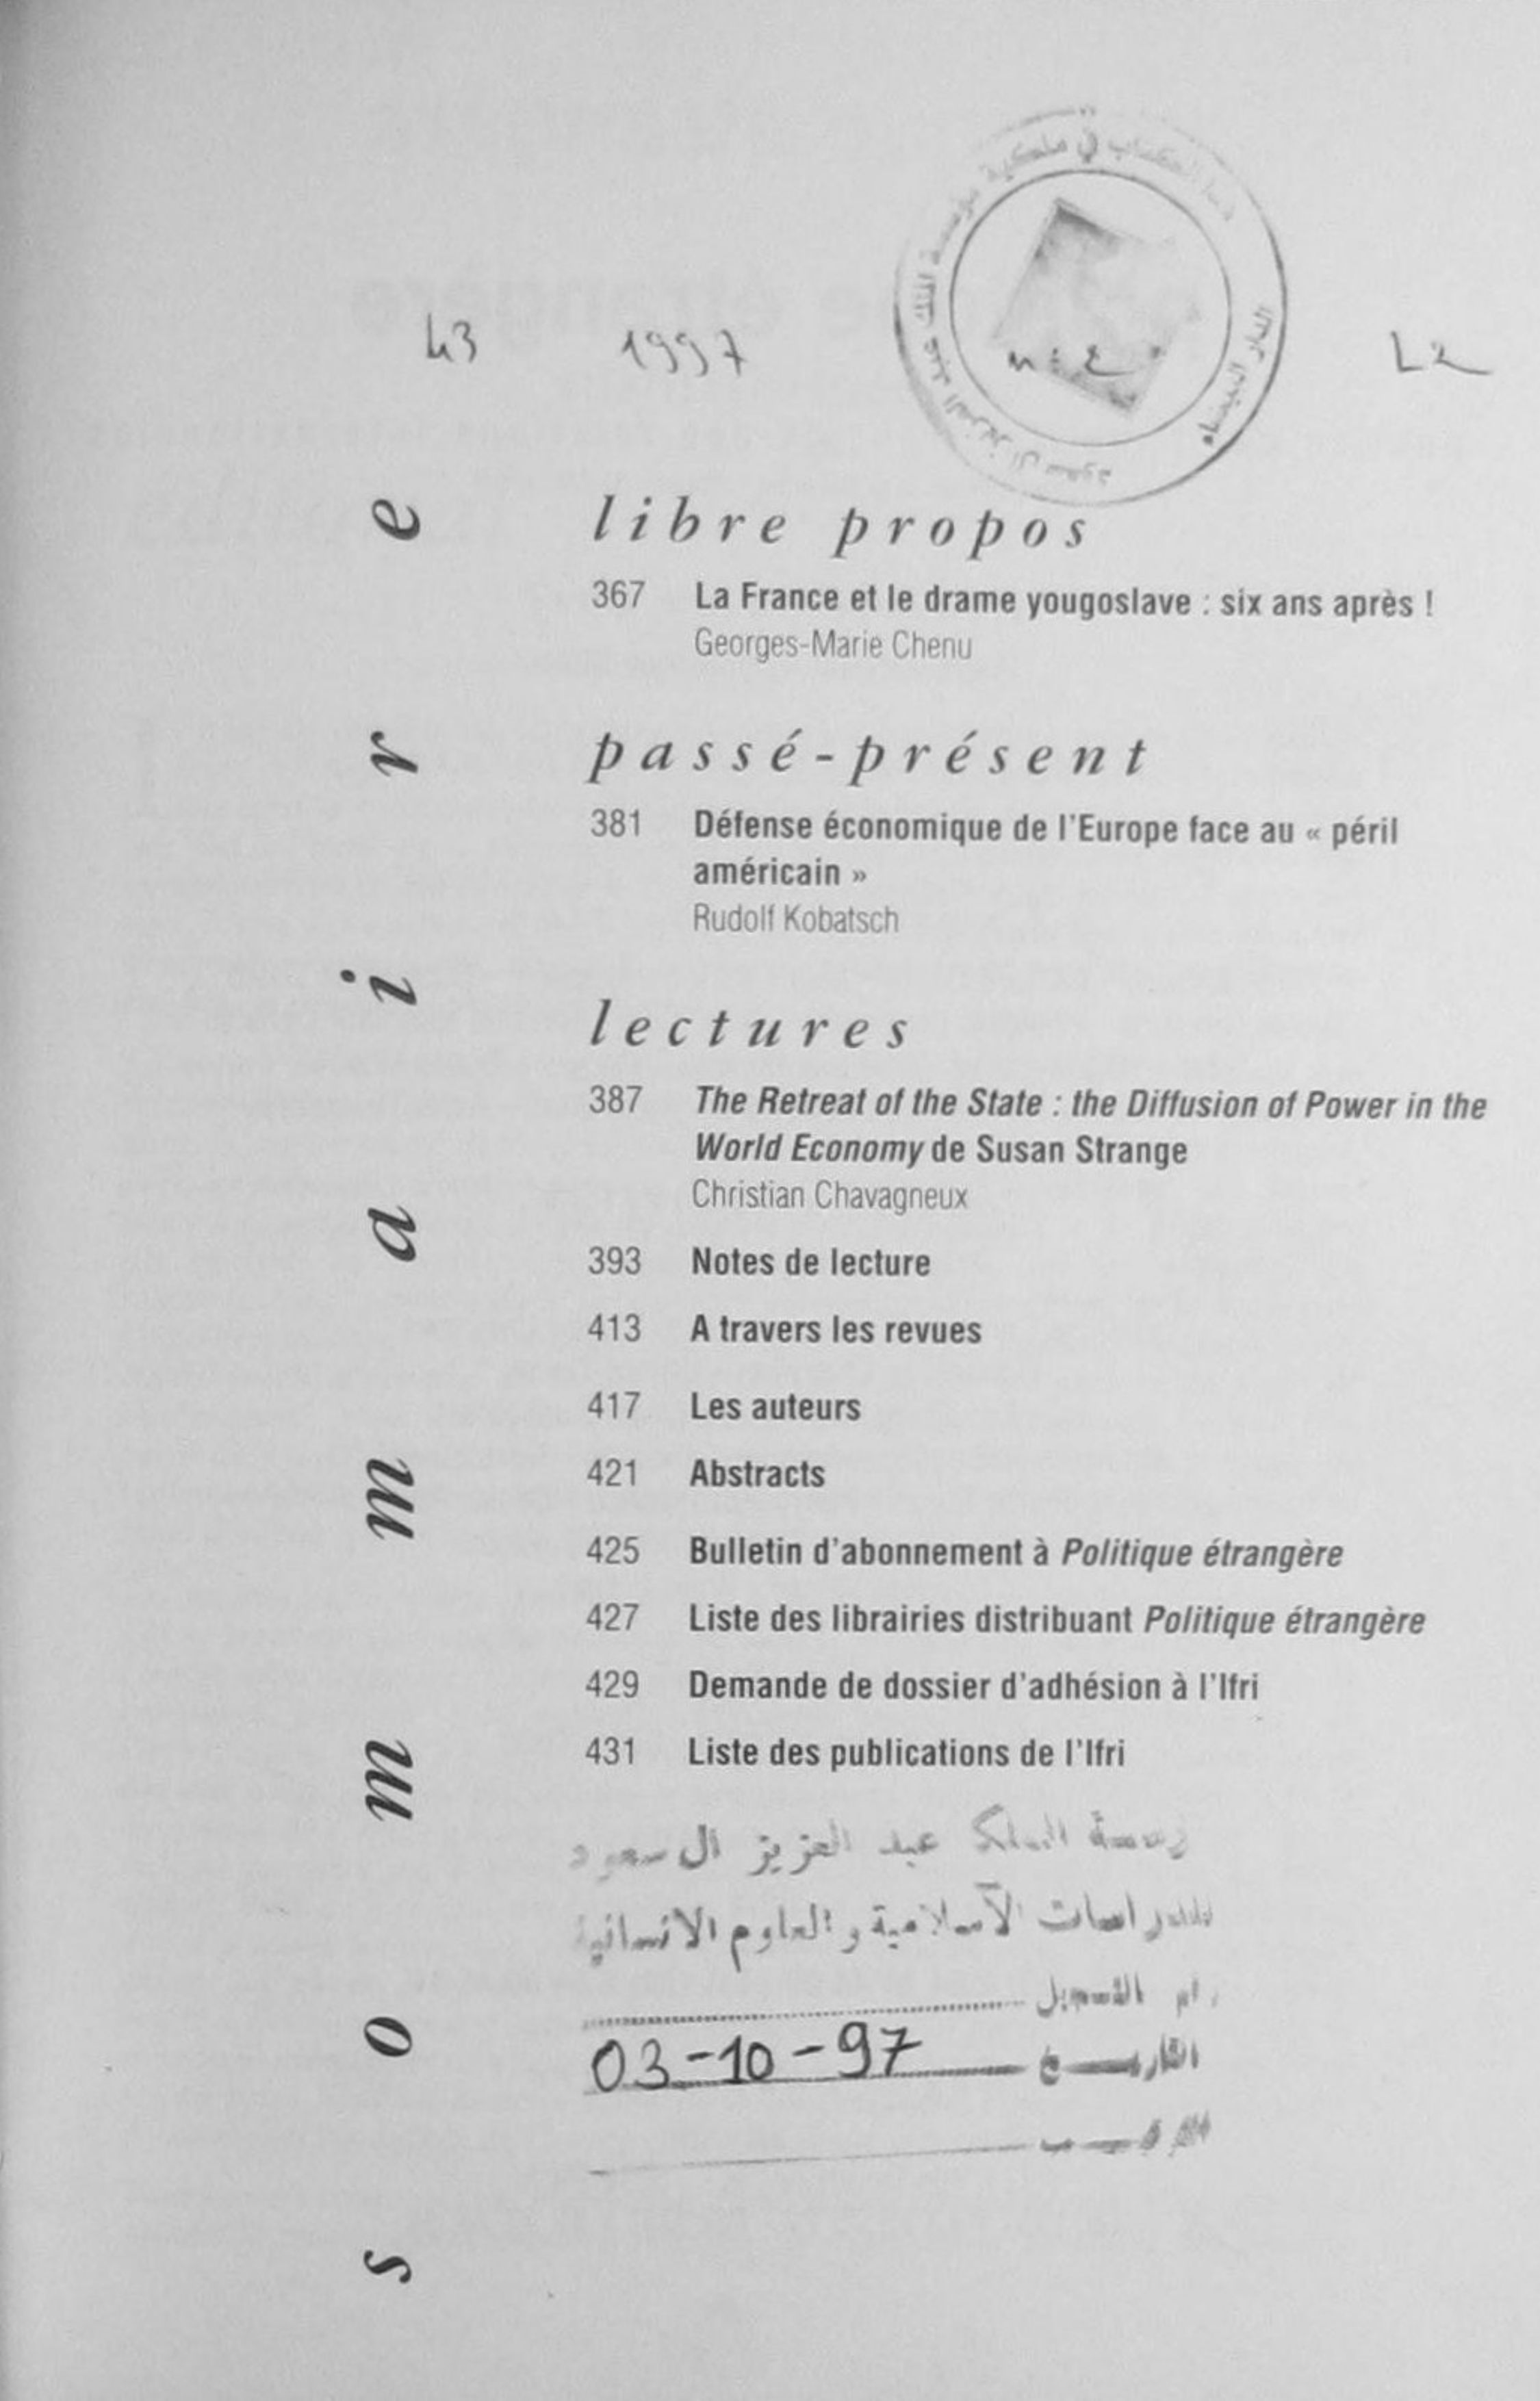 43 1997
هذا الكتاب في ملكية مؤسسة الملك عبد العزيز ال سعود
الدار البيضاء
sommaire
libre propos
367 La France et le drame yougoslave : six ans après !
Georges-Marie Chenu
passé-présent
381 Défense économique de l'Europe face au « péril
américain »
Rudolf Kobatsch
lectures
387 The Retreat of the State : the Diffusion of Power in the
World Economy de Susan Strange
Christian Chavagneux
393 Notes de lecture
413 A travers les revues
417 Les auteurs
421 Abstracts
425 Bulletin d'abonnement à Politique étrangère
427 Liste des librairies distribuant Politique étrangère
429 Demande de dossier d'adhésion à l'Ifri
431 Liste des publications de l'Ifri
مؤسسة الملك عبد العزيز ال سعود
للدراسات الاسلامية والعلوم الانسانية
رقم التسجيل
التاريخ 03-10-97